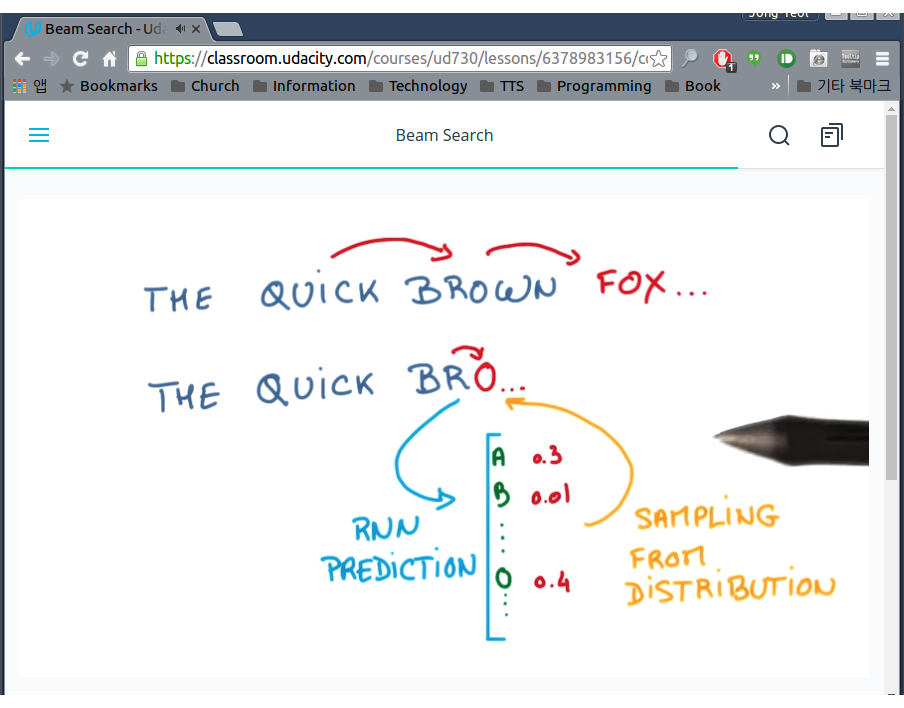 Beam Search - Uda
https://classroom.udacity.com/courses/ud730/lessons/6378983156/c
앱 Bookmarks Church Information Technology TTS Programming Book » 기타 북마크
Beam Search
THE QUICK BROWN FOX...
THE QUICK BRO...
A 0.3
B 0.01
RNN PREDICTION
O 0.4
SAMPLING
FROM
DISTRIBUTION